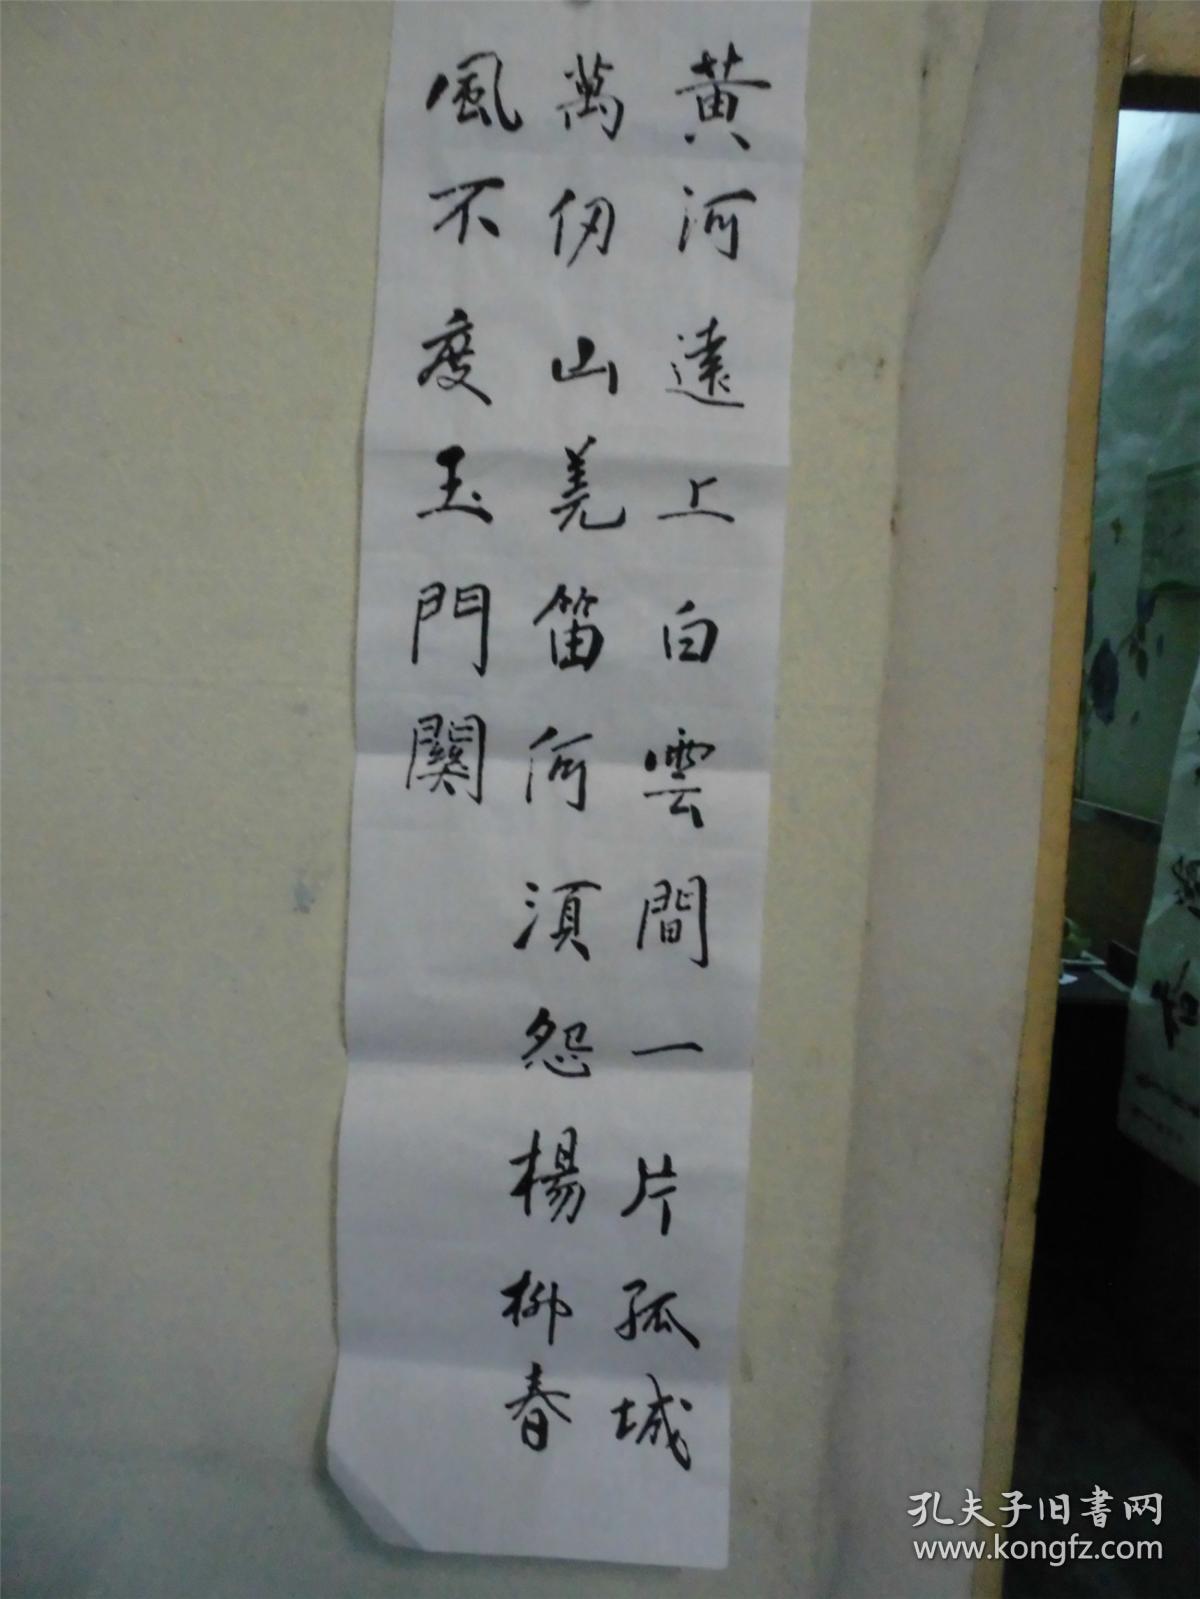 黄河遠上白雲間一片孤城
萬仞山羌笛何須怨楊柳春
風不度玉門關
孔夫子旧書网
www.kongfz.com